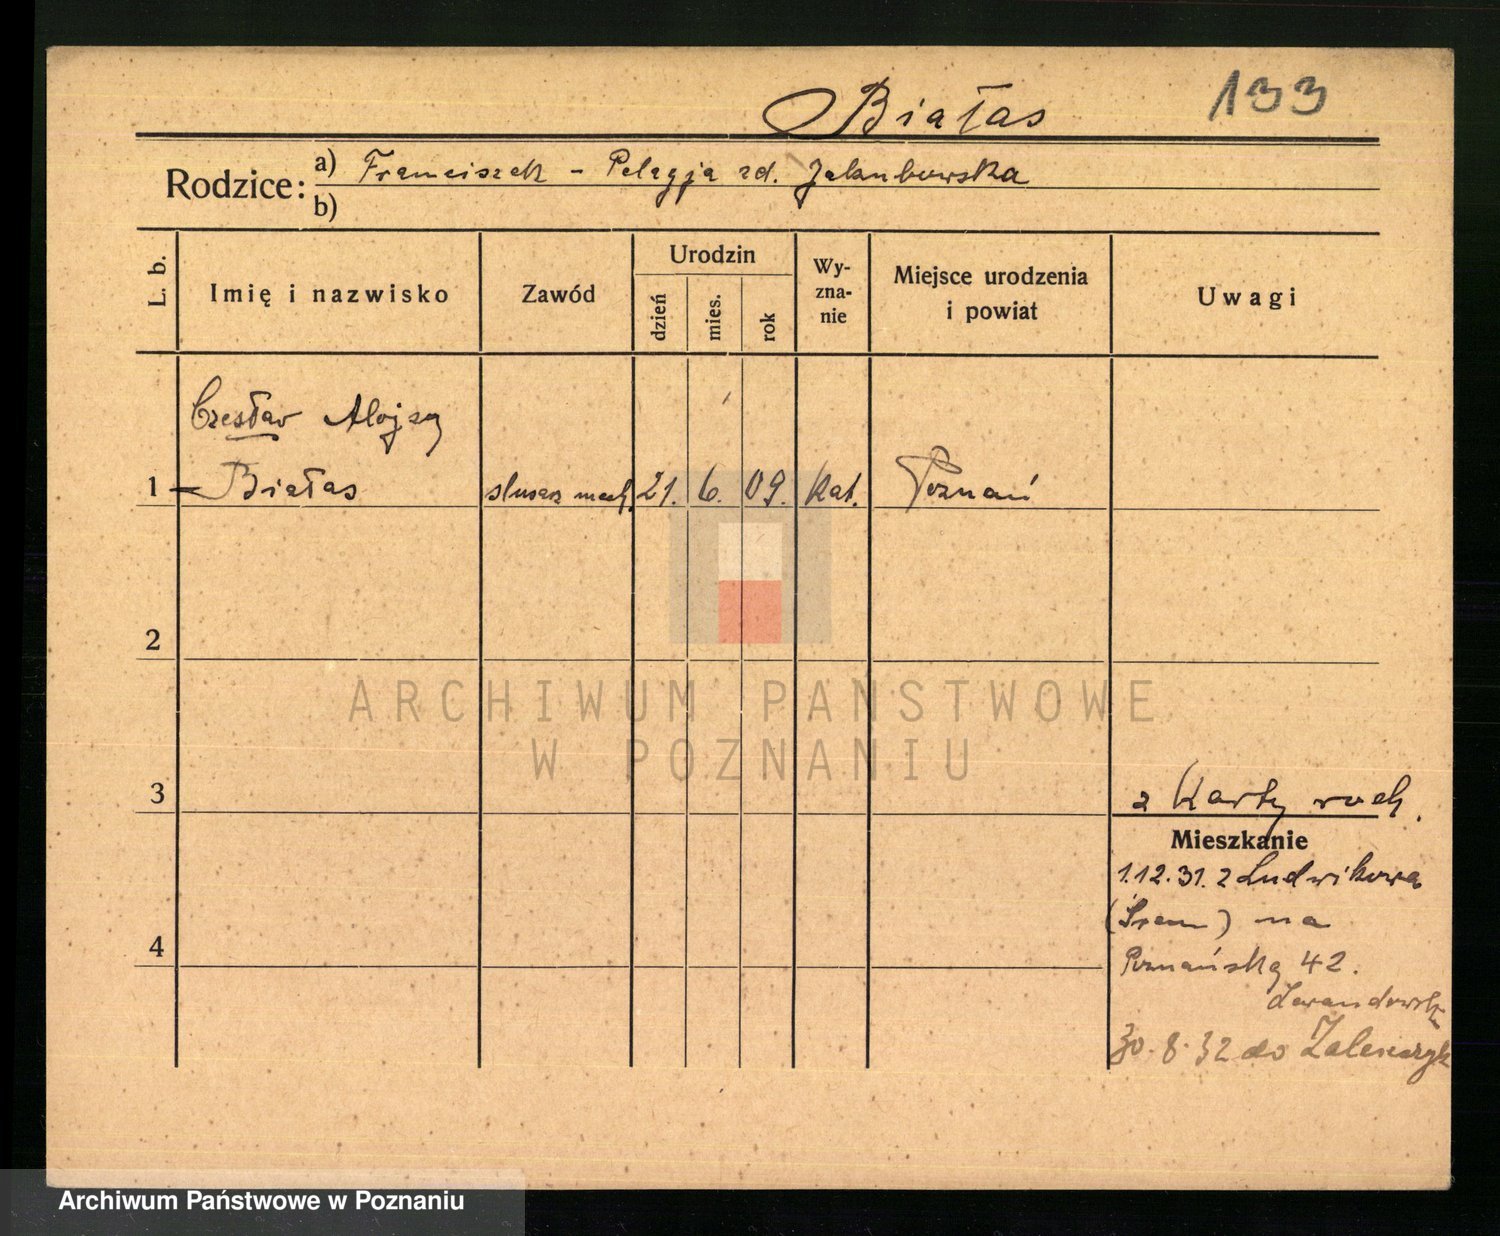 Białas 133
Rodzice: a) Franciszek - Pelagja zd. Jakubowska
b)
L. b. Imię i nazwisko Zawód Urodzin dzień mies. rok Wy-zna-nie Miejsce urodzenia i powiat Uwagi
Czesław Alojzy
1 Białas slusarz mech. 21. 6. 09. kat. Poznań
2
ARCHIWUM PAŃSTWOWE
W POZNANIU
3 z Karty roch.
Mieszkanie
1.12.31. z Ludwikowa
(Śrem) na
4 Poznańską 42.
30.8.32 do Zaleszczyk
Archiwum Państwowe w Poznaniu